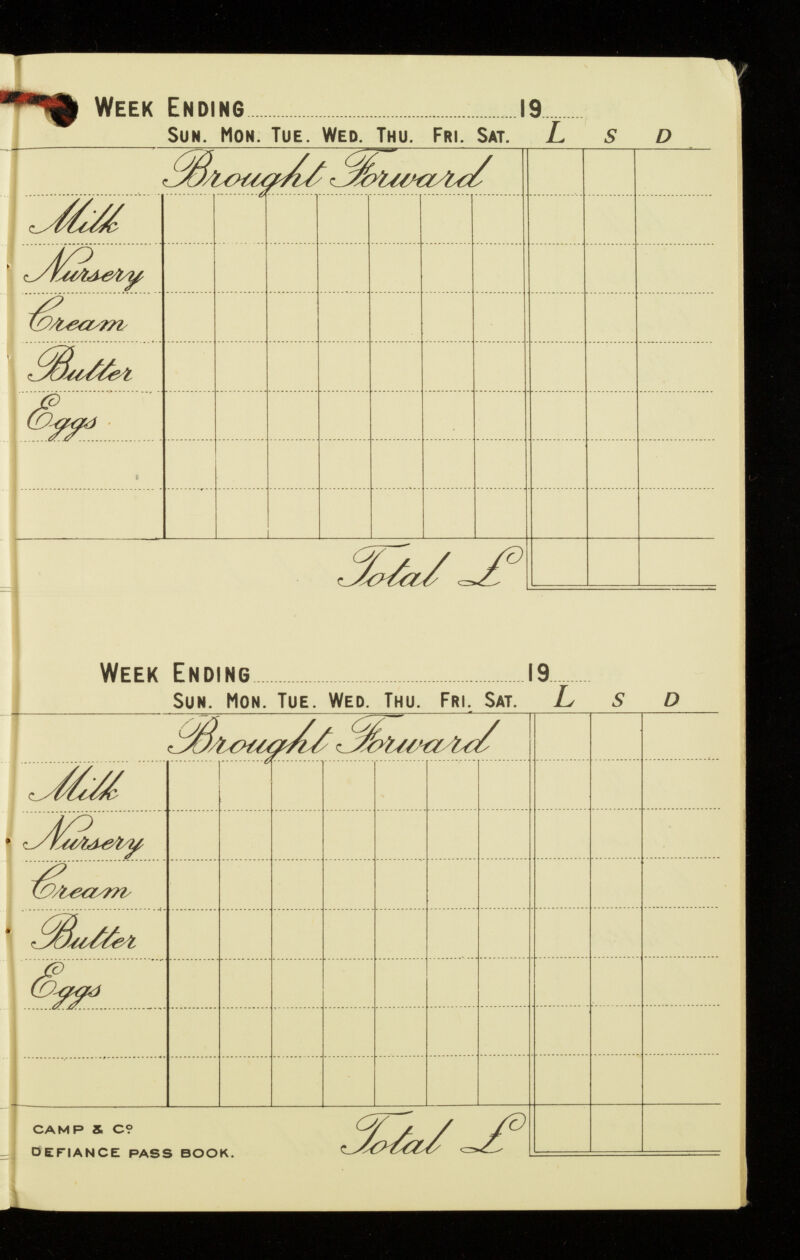 WEEK ENDING 19
SUN. MON. TUE. WED. THU. FRI. SAT. L S D
Brought Forward
Milk
Nursery
Cream
Butter
Eggs
Total £
WEEK ENDING 19
SUN. MON. TUE. WED. THU. FRI. SAT. L S D
Brought Forward
Milk
Nursery
Cream
Butter
Eggs
Total £
CAMP & Co
DEFIANCE PASS BOOK.